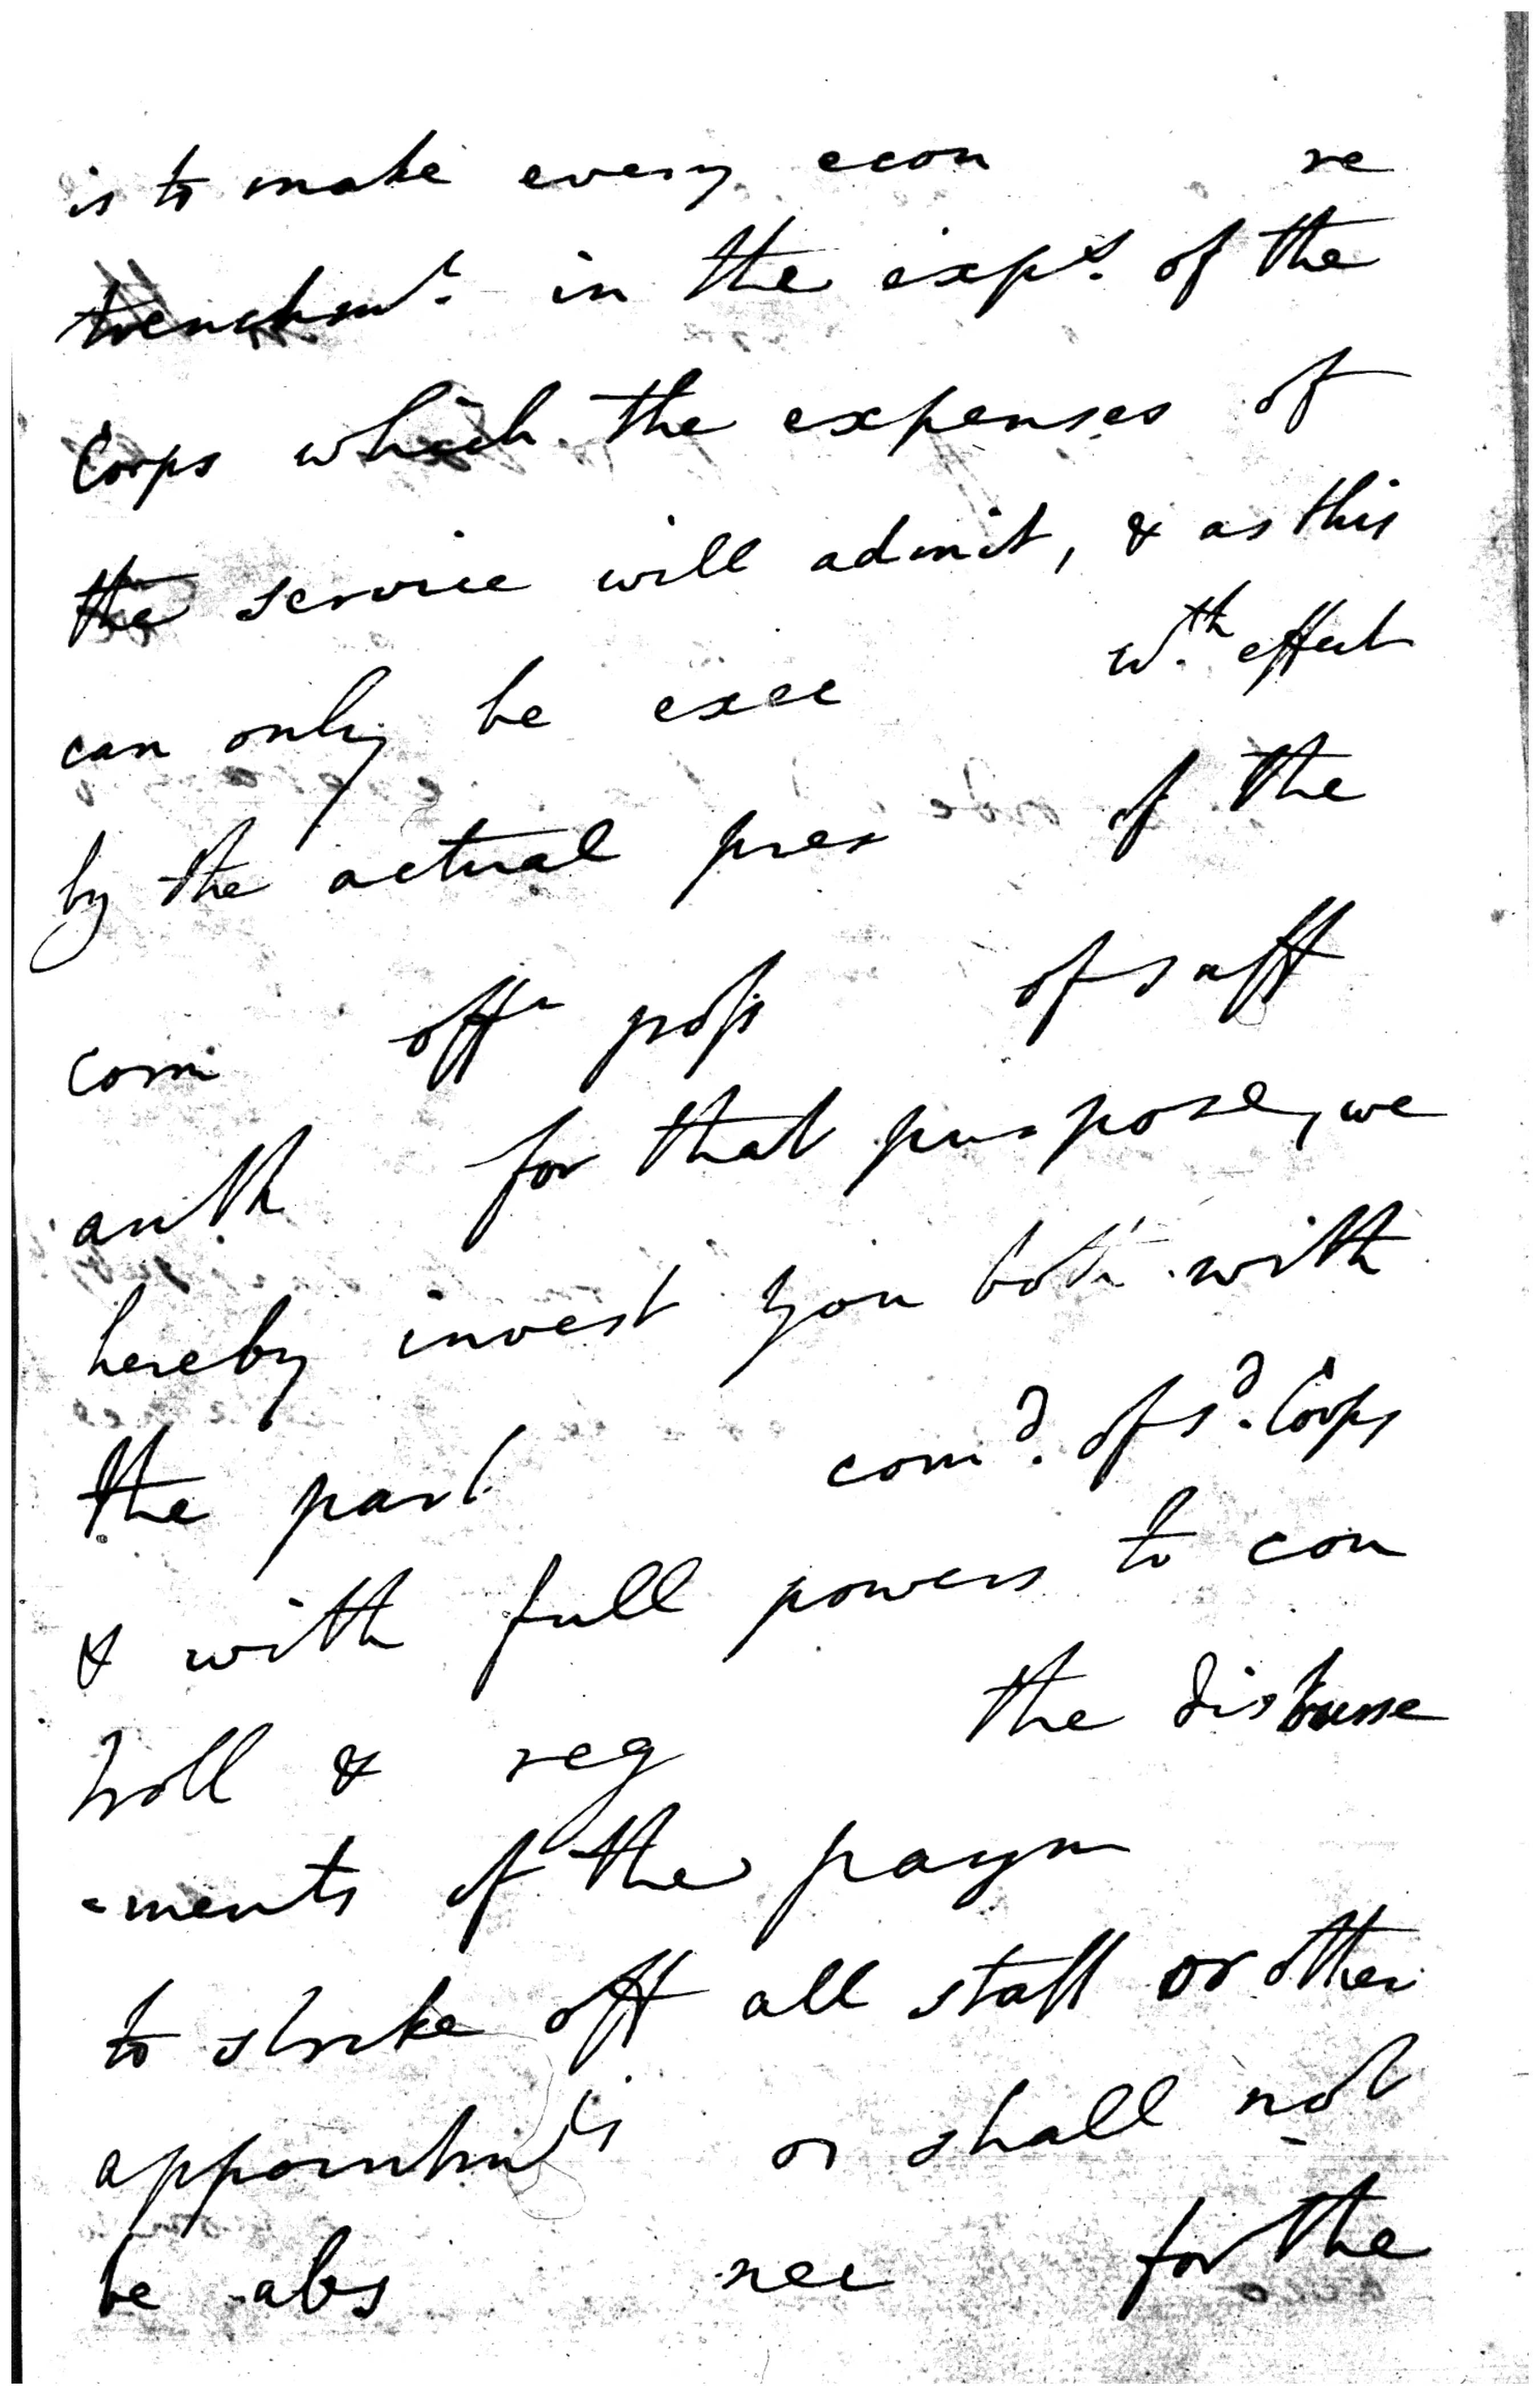 is to make every econ re
trenchmt. in the exps. of the
Corps which the expenses of
the service will admit, & as this
can only be exec wth. effect
by the actual pres of the
com offr poss of suff
auth for that purpose, we
hereby invest you both with
the part comd. of sd. Corps
& with full powers to con
troll & reg the disburse
-ments of the paym
to strike off all staff or other
appointmts or shall not
be abs nec for the